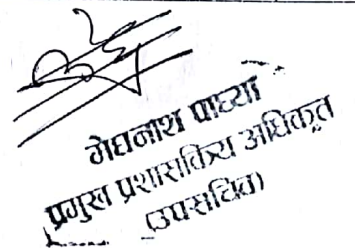 मेघनाथ पाध्या
प्रमुख प्रशासकिय अधिकृत
(उपसचिव)